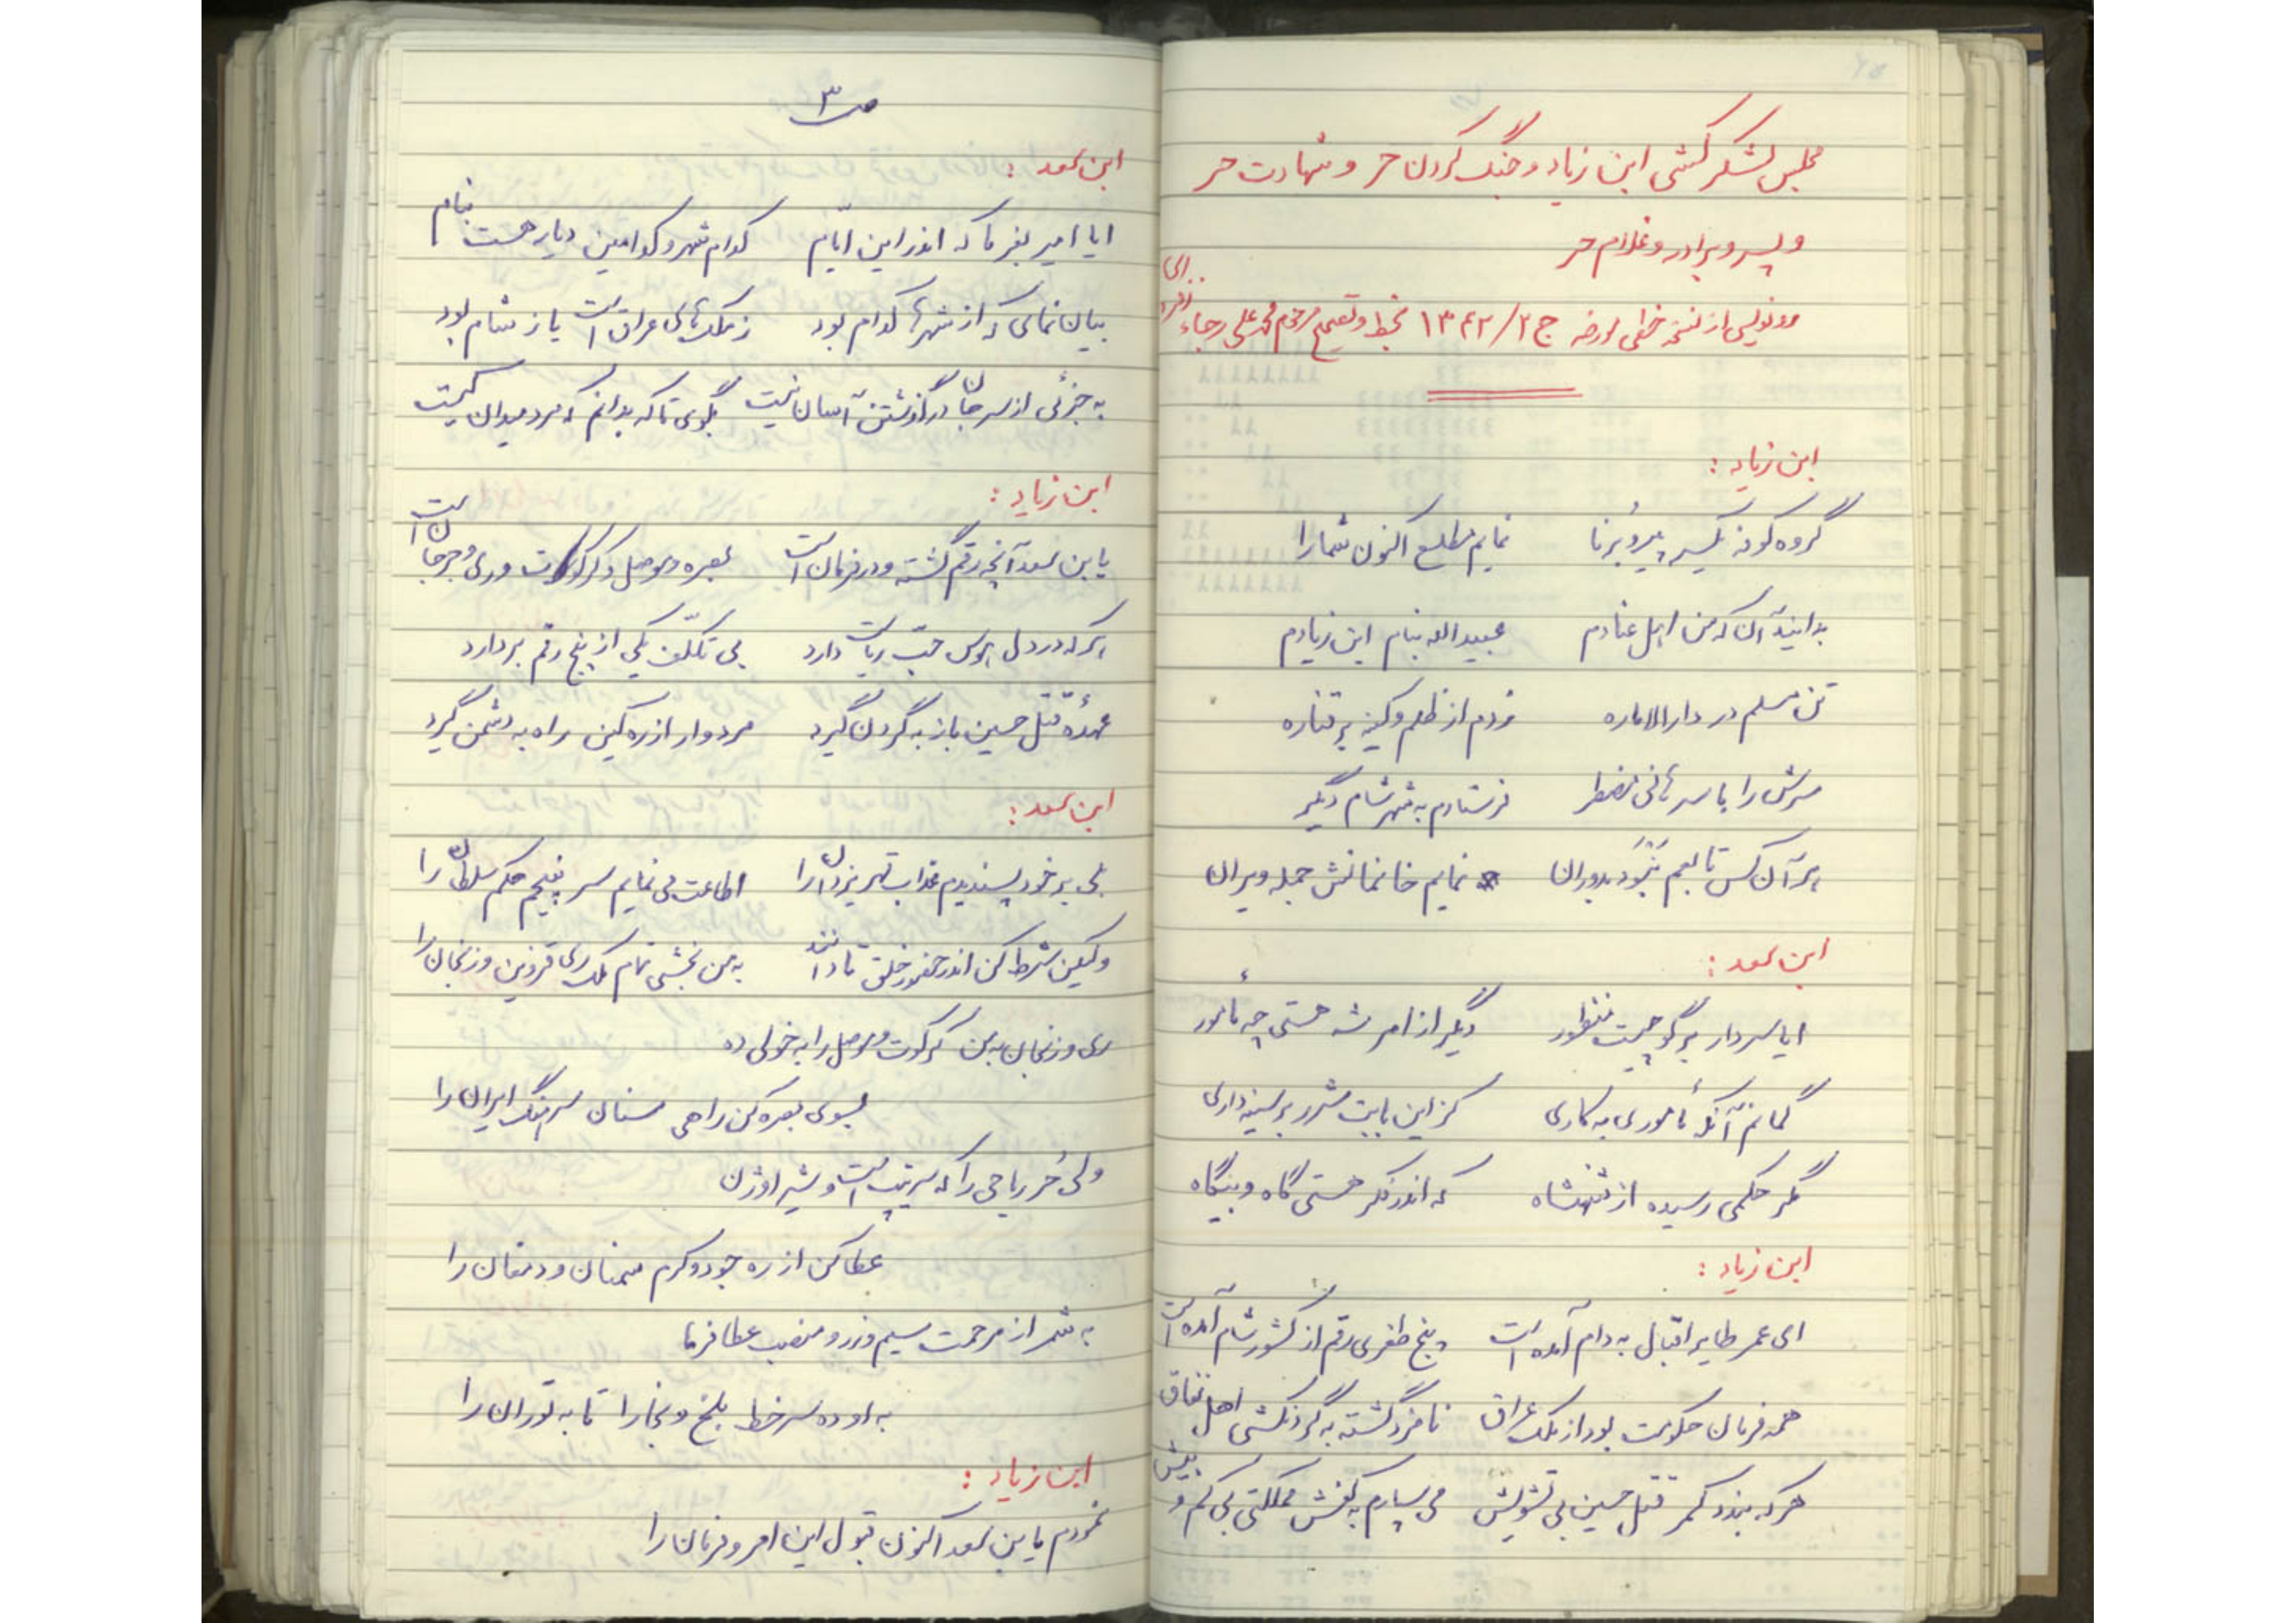 مجلس لشکر کشی ابن زیاد و جنگ کردن حر و شهادت حر
و پسر و برادر و غلام حر
رونویسی از نسخه خطی مورخه ج ۲/ ۱۳۴۲ بخط و تصحیح مرحوم محمد علی رجاء
ابن زیاد :
گروه کوفه یکسر پیر و بُرنا نمایم مطلع اکنون شما را
بدانید آن که من اهل عنادم عبیداله بنام ابن زیادم
تن مسلم در دار الاماره زدم از ظلم و کینه بر قناره
سرش را با سر هانی مضطر فرستادم به شهر شام دیگر
هر آن کس تابعم نَبْوَد بدوران نمایم خانمانش جمله ویران
ابن سعد :
ایا سردار برگو چیست منظور دیگر از امر شه هستی چه مأمور
گمانم آنکه مأموری به کاری کز این بابت شرر بر سینه داری
مگر حکمی رسیده از شهنشاه که اندر فکر هستی گاه و بیگاه
ابن زیاد :
ای عمر طایر اقبال به دام آمده است پنج طغری رقم از کشور شام آمده است
همه فرمان حکومت بود از ملک عراق نامزد گشته به گردنکشی اهل نفاق
هر که بندد کمر قتل حسین بی تشویش می سپارم به کفش مملکتی بی کم و بیش
ص ۳
ابن سعد :
ایا امیر بفرما که اندر این ایّام کدام شهر و کدامین دیار هست بنام
بیان نمای که از شهرها کدام بود ز ملک های عراق است یا ز شام بود
به جزئی از سر جان در گذشتن آسان نیست بگوی تا که بدانم که مرد میدان کیست
ابن زیاد :
یابن سعد آنچه رقم گشته و در فرمان است بصره و موصل و کرکوت و ری و جرجان است
هر که در دل هوس حبّ ریاست دارد بی تکلّف یکی از پنج رقم بردارد
عهدهٔ قتل حسین باز به گردن گیرد مردوار از ره کین راه به دشمن گیرد
ابن سعد :
بلی بر خود پسندیدم عذاب قهر یزدان را اطاعت می نمایم سر نپیچم حکم سلطان را
ولیکن شرط کن اندر حضور خلق تا دانند به من بخشی تمام ملک ری قزوین و زنجان را
ری و زنجان به من کرکوت و موصل را به خولی ده
بسوی بصره کن راهی سنان سرهنگ ایران را
ولی حُر ریاحی را که سرتیپ است و شیر اوژن
عطا کن از ره جود و کرم سمنان و دمغان را
به شمر از مرحمت سیم و زر و منصب عطا فرما
به او ده سر خط بلخ و بخارا تا به توران را
ابن زیاد :
نمودم یابن سعد اکنون قبول این امر و فرمان را